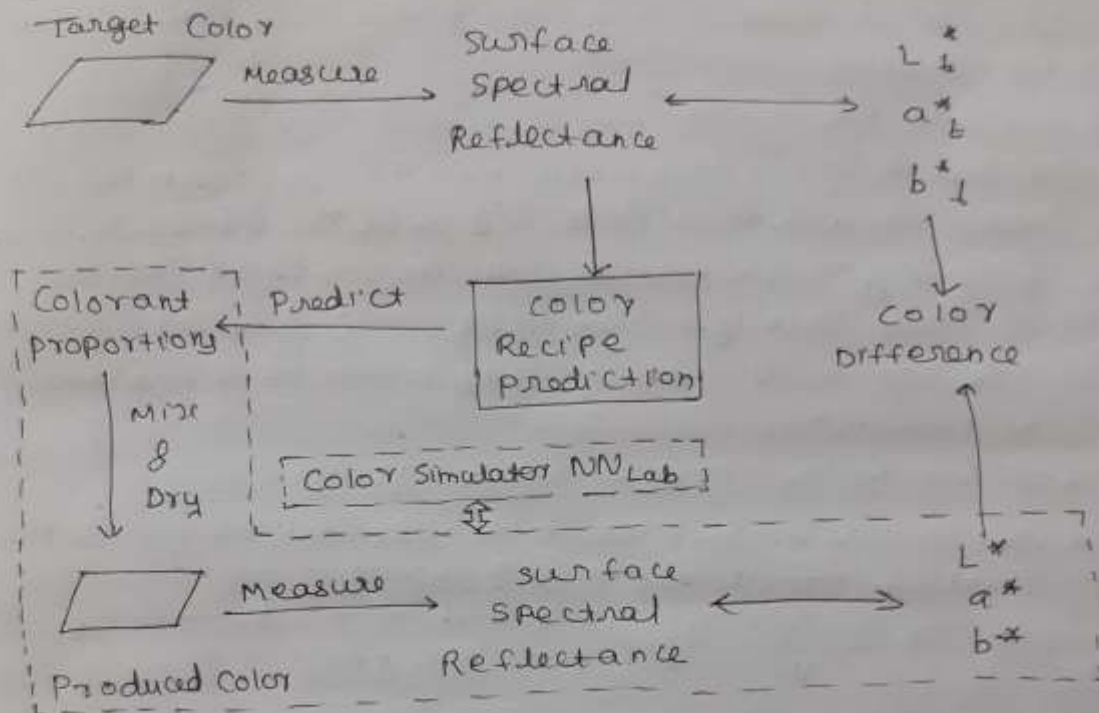 Target Color
Measure
Surface
Spectral
Reflectance
L*t
a*t
b*t
Colorant
proportions
Predict
Color
Recipe
prediction
Color
Difference
Mix
&
Dry
Color Simulator NN Lab
Measure
surface
Spectral
Reflectance
L*
a*
b*
Produced Color